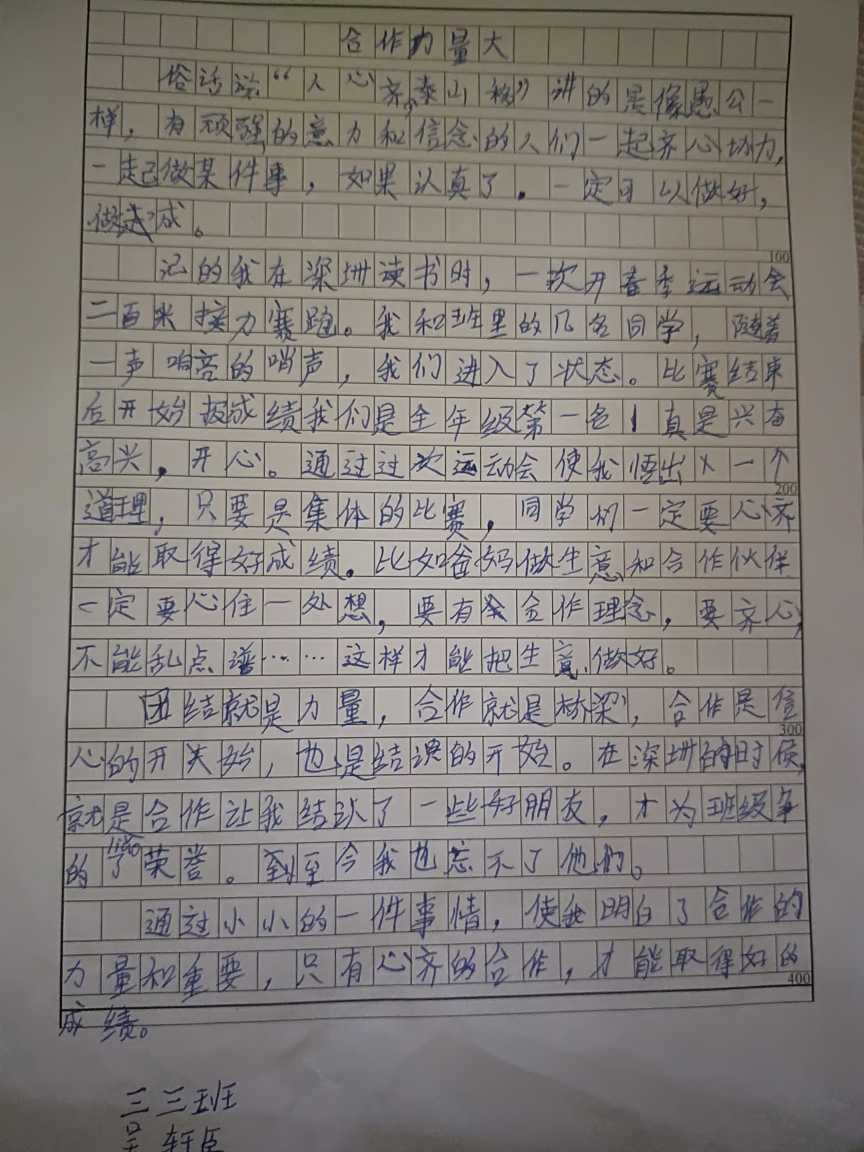 合作力量大
俗话说“人心齐,泰山移”讲的是像愚公一
样，有顽强的意力和信念的人们一起齐心协力,
一起做某件事，如果认真了．一定可以做好，
做成。
100
记的我在深圳读书时，一次开春季运动会
二百米接力赛跑。我和班里的几名同学，随着
一声响亮的哨声，我们进入了状态。比赛结束
后开始报成绩我们是全年级第一名！真是兴奋
高兴，开心。通过过次运动会使我悟出一个
200
道理，只要是集体的比赛，同学们一定要心齐
才能取得好成绩．比如爸妈做生意和合作伙伴
一定要心住一处想，要有合作理念，要齐心,
不能乱点谱……这样才能把生意做好。
团结就是力量，合作就是桥梁，合作是信
300
心的开始，也是结识的开始。在深圳的时候,
就是合作让我结识了一些好朋友，才为班级争
的了荣誉。到至今我也忘不了他们。
通过小小的一件事情，使我明白了合作的
力量和重要，只有心齐的合作，才能取得好的
400
成绩。
三三班
吴轩臣